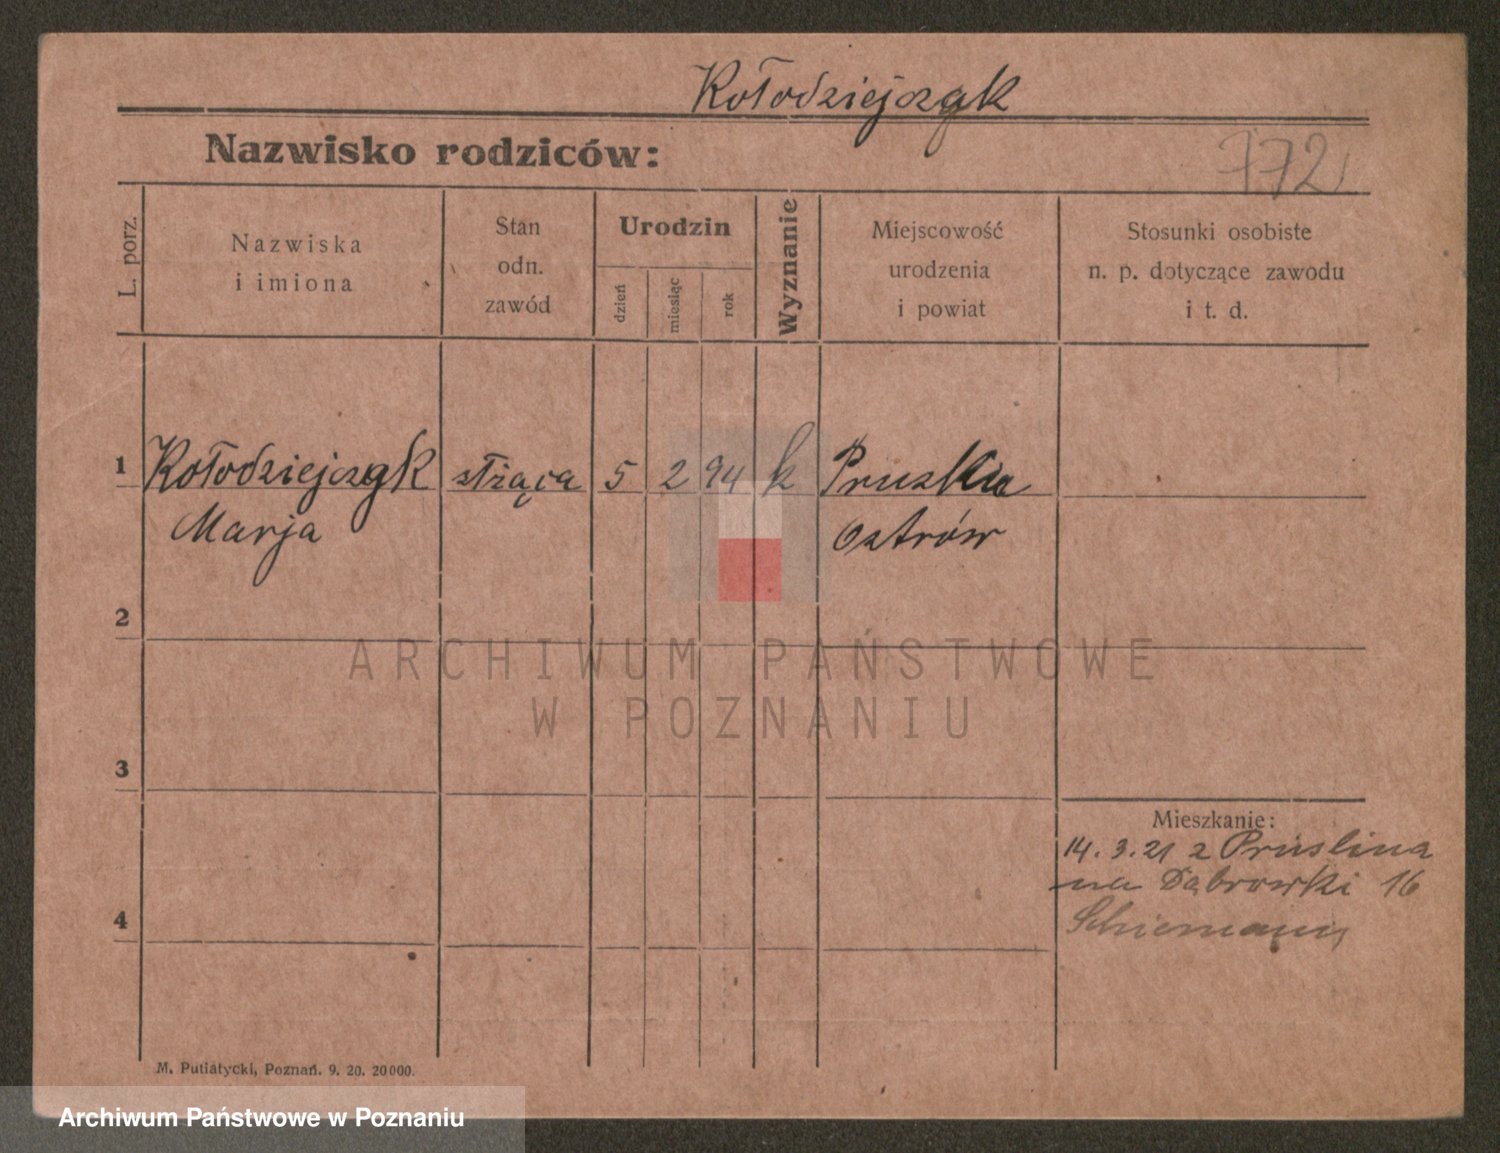 Kołodziejczyk
Nazwisko rodziców:
772
L. porz.
Nazwiska
i imiona
Stan
odn.
zawód
Urodzin
dzień
miesiąc
rok
Wyznanie
Miejscowość
urodzenia
i powiat
Stosunki osobiste
n. p. dotyczące zawodu
i t. d.
1 Kołodziejczyk służąca 5 2 94 k
Marja Ostrów
2
ARCHIWUM PAŃSTWOWE
W POZNANIU
3
Mieszkanie:
14.3.21 z Pruślina
na Dąbrowski 16
4
M. Putiatycki, Poznań. 9. 20. 20000.
Archiwum Państwowe w Poznaniu